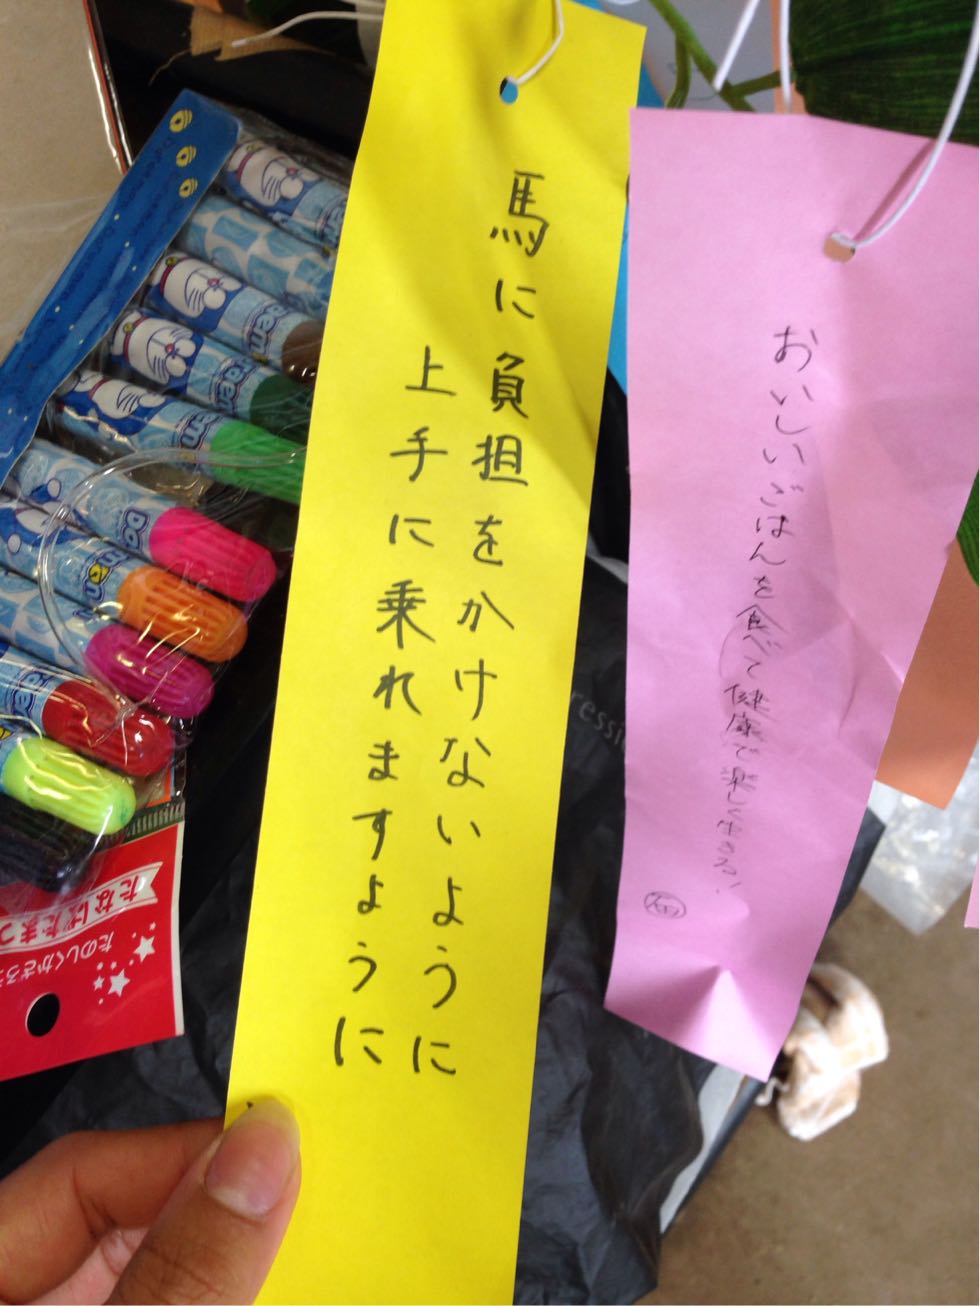 馬に負担をかけないように
上手に乗れますように
おいしいごはんを食べて健康で楽しく生きる!
Doraemon
たなばたまつ
たのしくかざろ
ressi